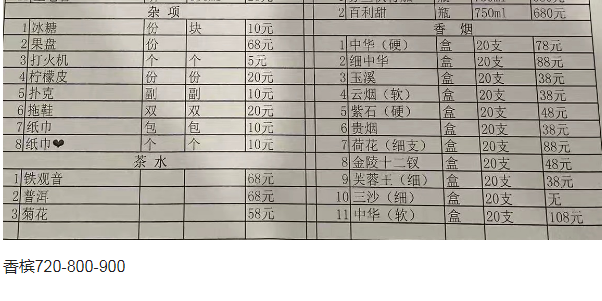 杂 项
1 冰糖 份 块 10元
2 果盘 份 68元
3 打火机 个 个 5元
4 柠檬皮 份 份 20元
5 扑克 副 副 10元
6 拖鞋 双 双 20元
7 纸巾 包 包 10元
8 纸巾❤ 个 个 10元
茶 水
1 铁观音 68元
2 普洱 68元
3 菊花 58元
2 百利甜 瓶 750ml 680元
香 烟
1 中华（硬） 盒 20支 78元
2 细中华 盒 20支 88元
3 玉溪 盒 20支 38元
4 云烟（软） 盒 20支 38元
5 紫石（硬） 盒 20支 48元
6 贵烟 盒 20支 38元
7 荷花（细支） 盒 20支 88元
8 金陵十二钗 盒 20支 48元
9 芙蓉王（细） 盒 20支 38元
10 三沙（细） 盒 20支 无
11 中华（软） 盒 20支 108元
香槟720-800-900